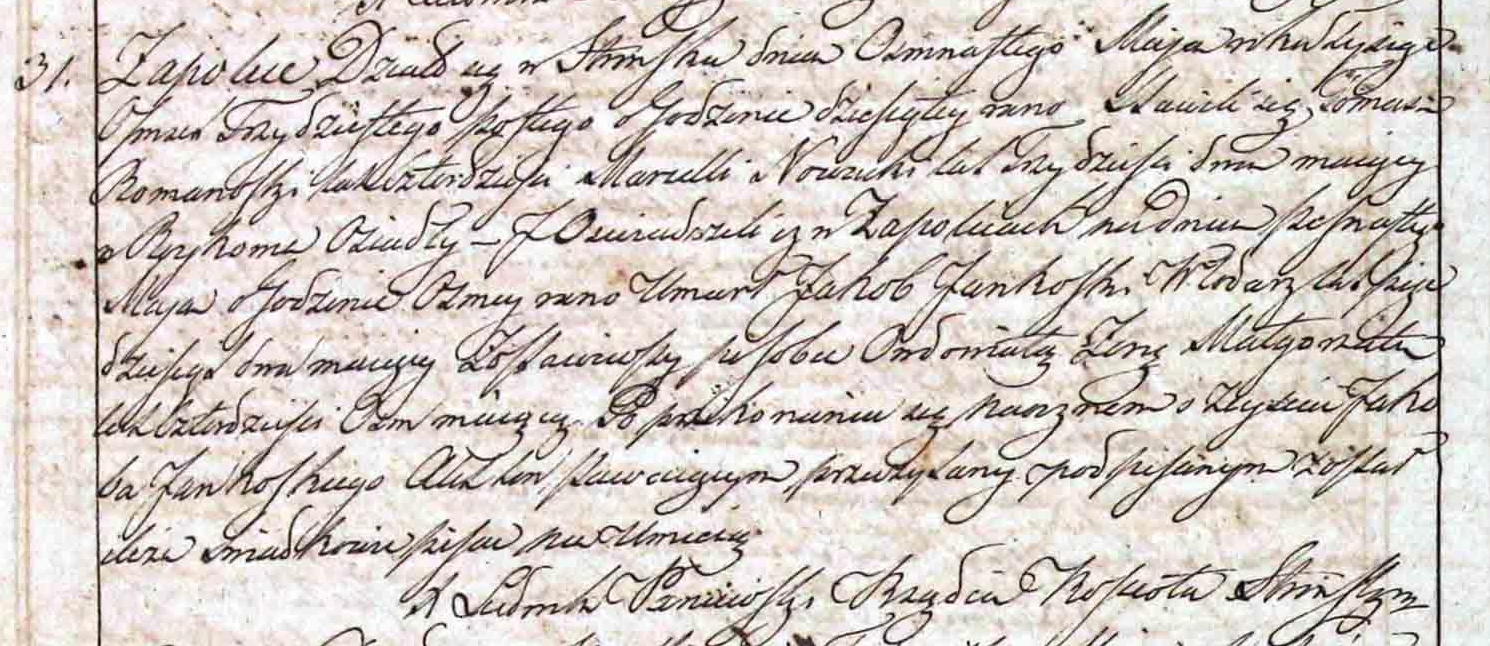 31. Zapolice Działo się w Strońsku dnia Osmnastego Maja roku tysiąc
Osmset Trzydziestego szóstego o Godzinie dziesiątey rano Stawili się Tomasz
Romanoski lat czterdzieści Marcelli Nowicki lat Trzydzieści dwa maiący
w Osiadły – I Oswiadczyli iż w Zapolicach na dniu szesnastego
Maja o Godzinie Osmey rano Umarł Jakob Jankoski Włodarz lat Pięć
dziesiąt dwa maiący Zostawiwszy po sobie Owdowiałą Żonę Małgorzatę
lat czterdzieści Osm maiącą. Po przekonaniu się naocznem o zeyściu Jako
ba Jankoskiego Akt ten stawaiącym przeczytany podpisanym został
ileże świadkowie pisać nie Umieią
X Ludwik Rządca Kościoła